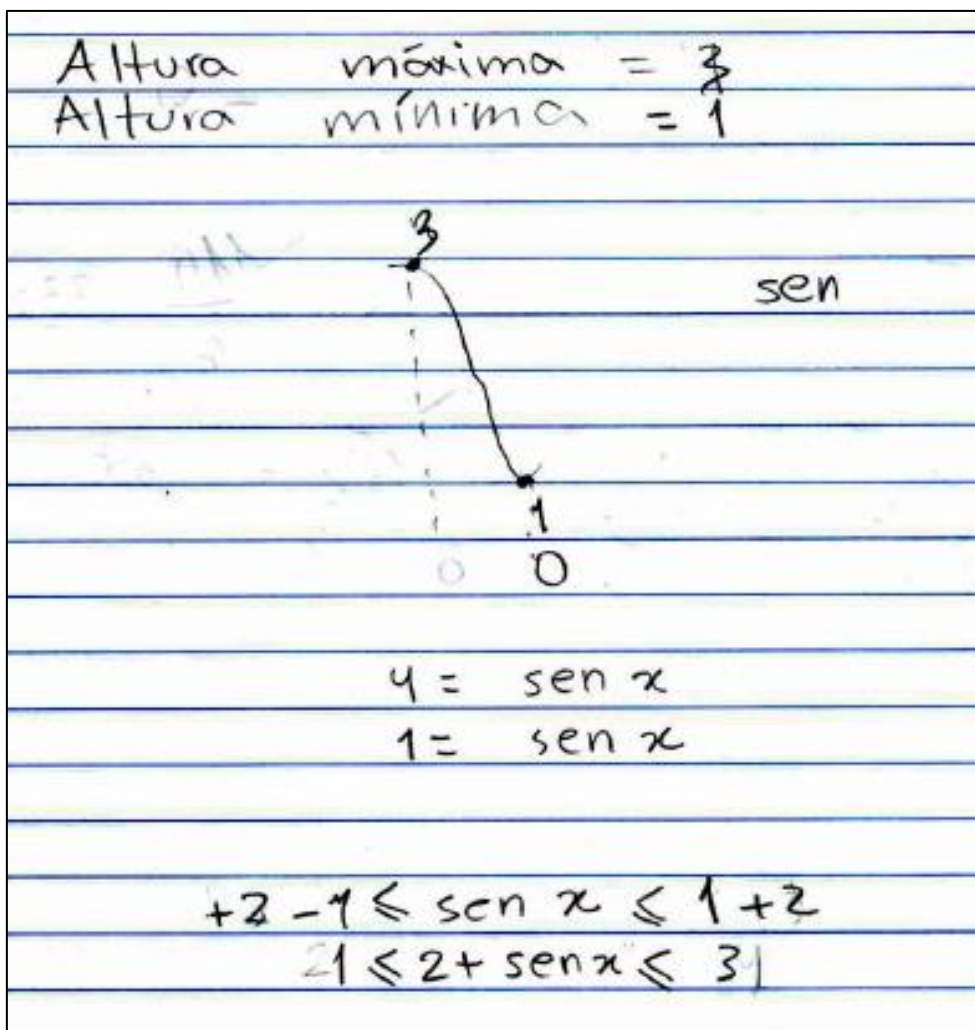 Altura máxima = 3
Altura mínima = 1
3
sen
1
0 0
4 = sen x
1 = sen x
+2 -1 ≤ sen x ≤ 1 +2
1 ≤ 2 + sen x ≤ 3